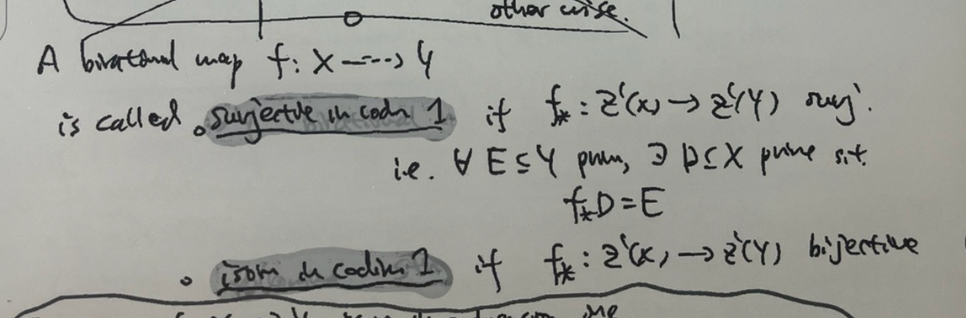 otherwise.
A birational map f: X ---> Y
is called • surjective in codim 1 if f_* : Z¹(X) → Z¹(Y) surj.
i.e. ∀ E ⊆ Y prime, ∃ D ⊆ X prime s.t.
f_* D = E
• isom in codim 1 if f_* : Z¹(X) → Z¹(Y) bijective